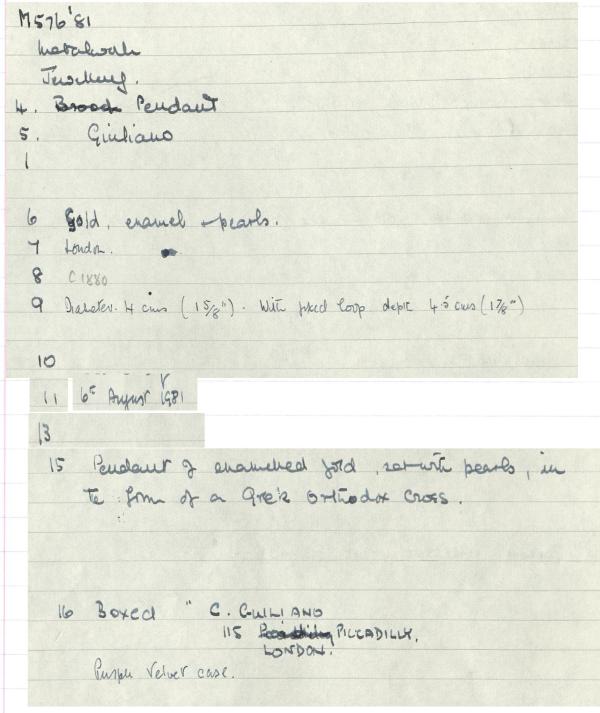 M576'81
Metalwork
Jewellery.
4. Brooch Pendant
5. Giuliano
1
6 Gold, enamel + pearls.
7 London.
8 C 1880
9 Diameter. 4 cms (1 5/8"). With fixed loop depth 4.5 cms (1 7/8")
10
11 6th August 1981
13
15 Pendant of enamelled gold, set with pearls, in
the form of a Greek Orthodox Cross.
16 Boxed " C. GUILIANO
115 PICCADILLY,
LONDON.
Purple velvet case.